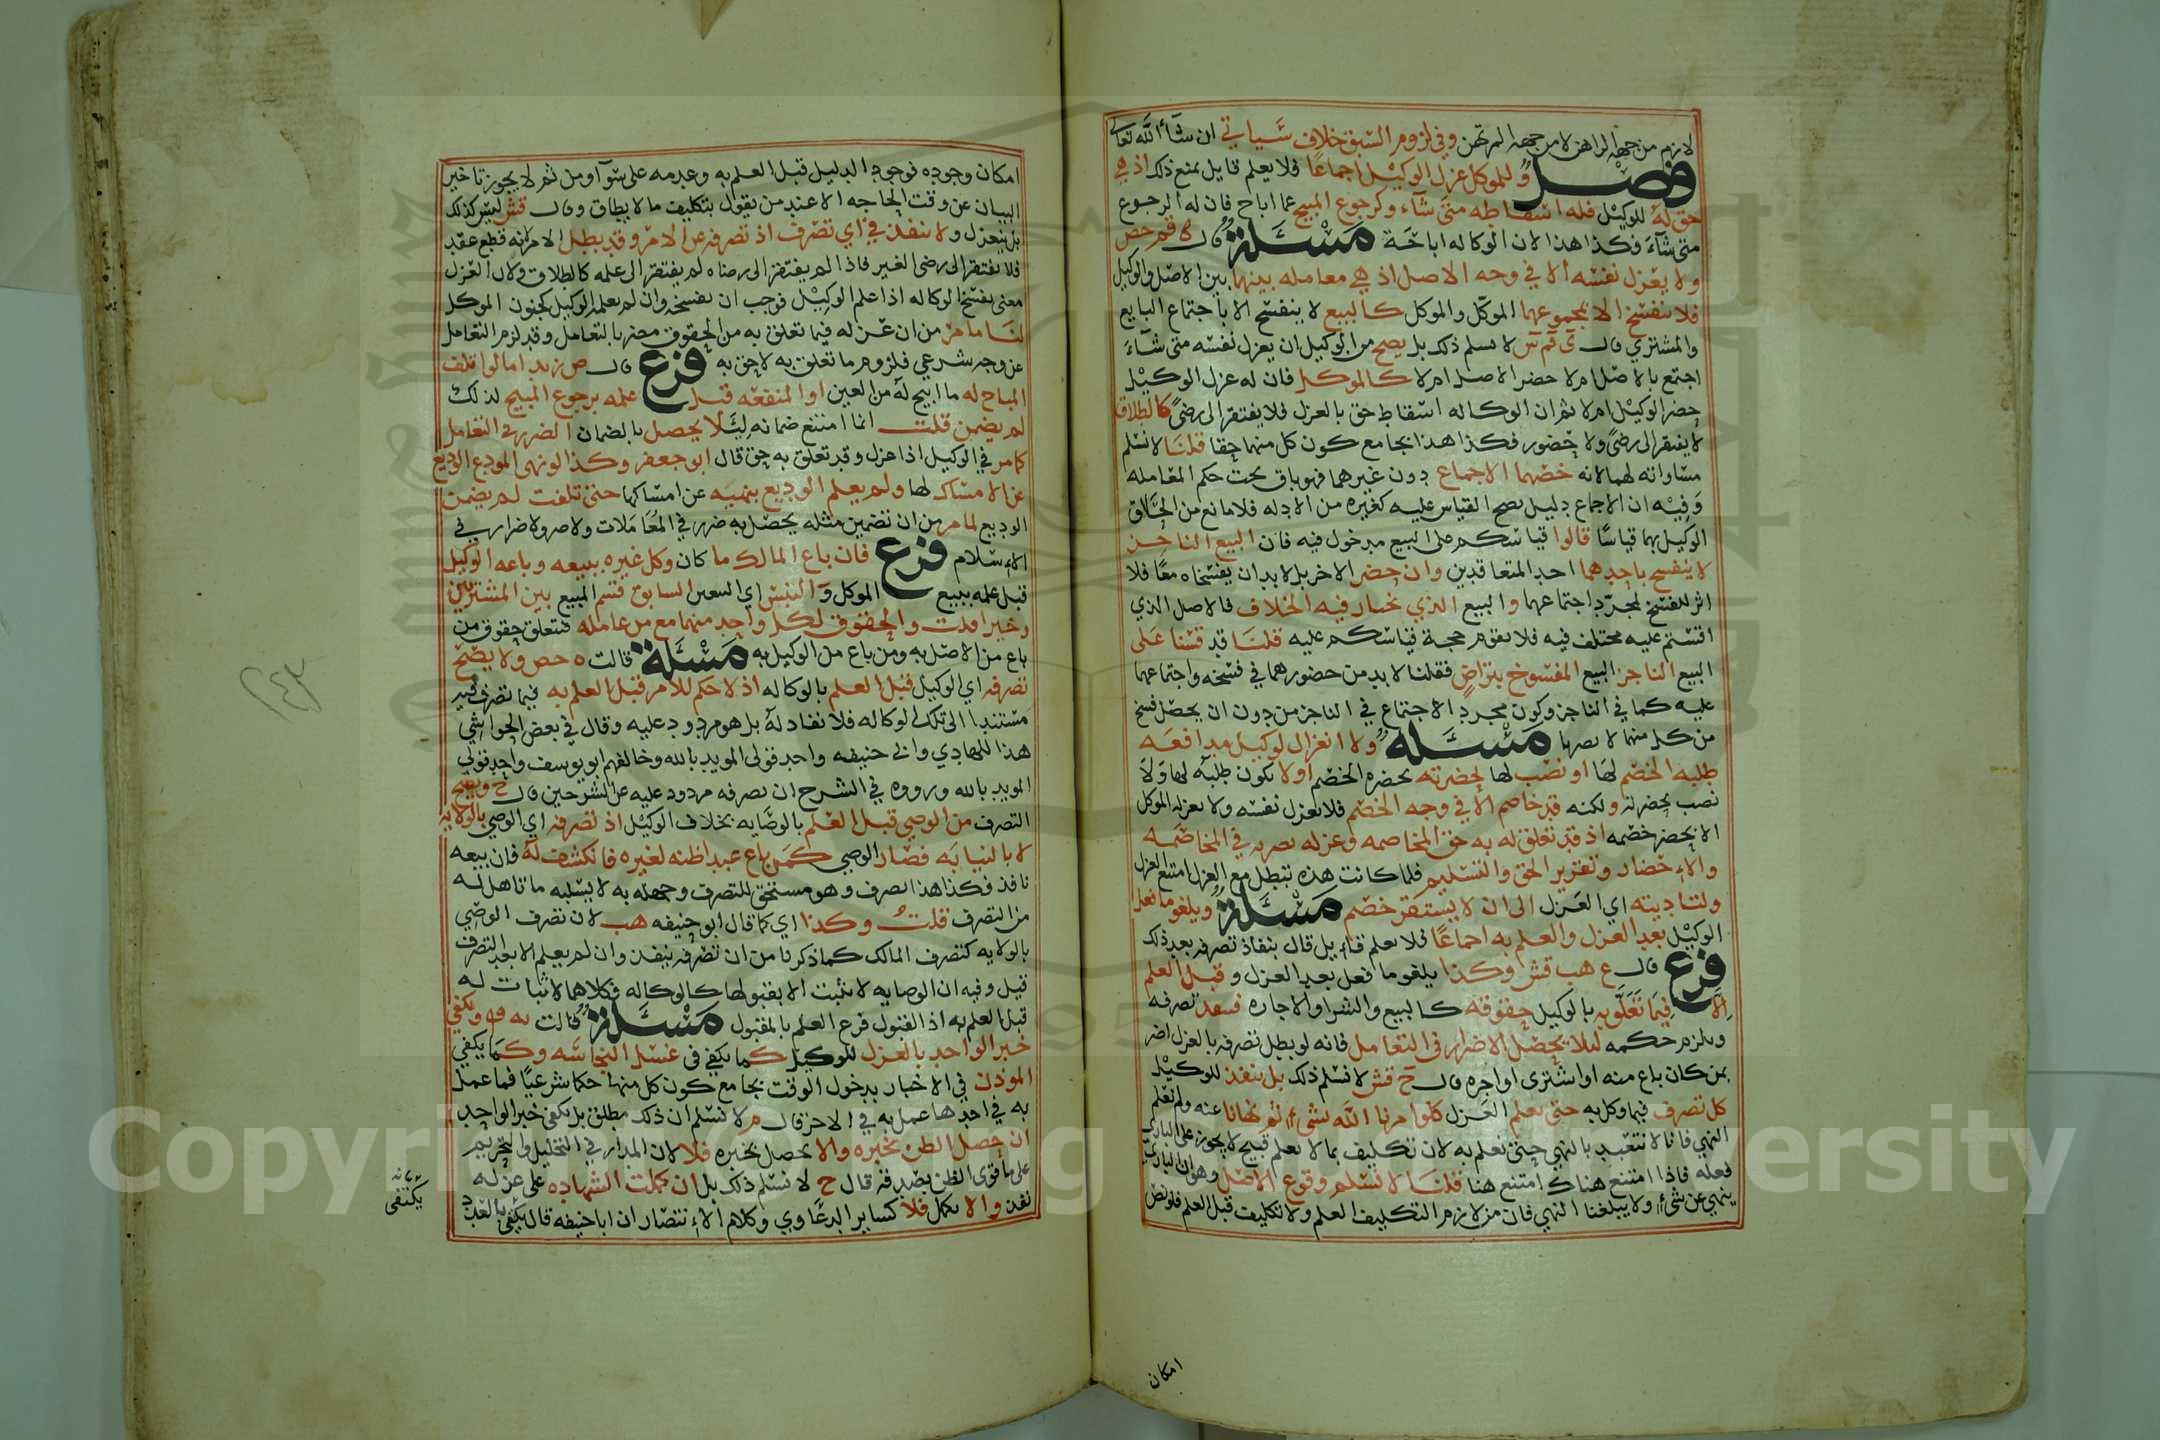 لازم من جهة الراهن لا من جهة المرتهن وفي لزوم السبق خلاف سياتي ان شآء الله تعالى
فصل وللموكل عزل الوكيل اجماعًا فلا يعلم قايل بمنع ذلك اذ هي
حق له للوكيل فله اسقاطه متى شآء وكرجوع المبيح عما اباح فان له الرجوع
متى شآء فكذا هذا لان الوكاله اباحة مسئلة قال ه قم حص
ولا يعزل نفسه الا في وجه الاصل اذ هي معامله بينهما بين الاصل والوكيل
فلا تنفسخ الا بمجموعهما الموكّل والموكل كالبيع لا ينفسخ الا باجتماع البايع
والمشتري قال ى قم ش لا نسلم ذلك بل يصح من الوكيل ان يعزل نفسه متى شآء
اجتمع بالاصل ام لا حضر الاصل ام لا كالموكل فان له عزل الوكيل
حضر الوكيل ام لا ثم ان الوكاله اسقاط حق بالعزل فلا يفتقر الى رضىً كالطلاق
لا يفتقر الى رضىً ولا حضور فكذا هذا بجامع كون كل منهما حقا قلنا لا نسلم
مساواته لهما لانه خصهما الاجماع دون غيرهما فهو باق تحت حكم المعامله
وفيه ان الاجماع دليل يصح القياس عليه كغيره من الادله فلا مانع من الحاق
الوكيل بهما قياسًا قالوا قياسكم على البيع مدخول فيه فان البيع الناجز
لا ينفسخ باحدهما احد المتعاقدين وان حضر الاخر بل لا بد ان يفسخاه معًا فلا
اثر للفسخ لمجرّد اجتماعهما والبيع الذي بخيار فيه الخلاف فالاصل الذي
اقستم عليه مختلف فيه فلا يقوم حجة قياسكم عليه قلنا قد قسنا على
البيع الناجز البيع المفسوخ بتراضٍ فقلنا لا بد من حضورهما في فسخه واجتماعهما
عليه كما في الناجز وكون مجرد الاجتماع في الناجز من دون ان يحصل فسخ
من كل منهما لا يضرنا مسئله ولا انعزال لوكيل مدافعه
طلبه الخصم لها او نصب لها لحضرته بحضرة الخصم او لا تكون طلبه لها ولا
نصب بحضرته ولكنه قد خاصم الا في وجه الخصم فلا يعزل نفسه ولا يعزله الموكل
الا بحضر خصمه اذ قد تعلق له به حق المخاصمه وعزله يضر به في المخاصمه
والاحضار وتقرير الحق والتسليم فلما كانت هذه تبطل مع العزل امتنع العزل
ولتاديته اي العزل الى ان لا يستقر خصم مسئلة ويلغو ما فعل
الوكيل بعد العزل والعلم به اجماعًا فلا يعلم قايل قال بنفاذ تصرفه بعد ذلك
فرع قال ع هب قش وكذا يلغو ما فعل بعد العزل وقبل العلم
الا فيما تعلق بالوكيل حقوقه كالبيع والشرا والاجاره فينفذ تصرفه
ويلزم حكمه ليلا يحصل الاضرار في التعامل فانه لو بطل تصرفه بالعزل اضر
بمن كان باع منه او اشترى او اجره قال ح قش لا نسلم ذلك بل ينفذ للوكيل
كل تصرف فيما وكل به حتى يعلم العزل كلوا مرنا الله بشيء ثم نهانا عنه ولم نعلم
النهي فانا لا نتعبد بالنهي حتى نعلم به لان تكليف بما لا يعلم قبيح لا يجوز على الباري
فعله فاذا امتنع هناك امتنع هنا قلنا لا نسلم وقوع الاصل وهو ان الباري
ينهى عن شيء ولا يبلغنا النهي فان من لازم التكليف العلم ولا تكليف قبل العلم فلو نص
امكان
امكان وجوده فوجود الدليل قبل العلم به وعدمه على سوآ ومن ثم لا يجوز تاخير
البيان عن وقت الحاجه الا عند من يقول بتكليف ما لا يطاق وقال قش ليس كذلك
بل ينعزل ولا ينفذ في اي تصرف اذ تصرفه عن الامر وقد بطل الامر لانه قطع عقد
فلا يفتقر الى رضى الغير فاذا لم يفتقر الى رضاه لم يفتقر الى علمه كالطلاق ولان العزل
معنى يفسخ الوكاله اذا علم الوكيل فوجب ان يفسخه وان لم يعلمه الوكيل كجنون الموكل
لنا ما مر من ان عزله فيما تعلق به من الحقوق مضر بالتعامل وقد لزم التعامل
عن وجه شرعي فلزوم ما تعلق به لاحق به فرع قال ص زيد اما لو اتلف
المباح له ما ابيح له من العين او المنفعه قبل علمه برجوع المبيح لذلك
لم يضمن قلت انما امتنع ضمانه لئلا يحصل بالضمان الضرر في التعامل
كما مر في الوكيل اذا عزل وقد تعلق به حق قال ابو جعفر وكذا لو نهى المودع الوديع
عن الامساك لها ولم يعلم الوديع بنهيه عن امساكها حتى تلفت لم يضمن
الوديع لما مر من ان تضمين مثله يحصل به ضرر في المعاملات ولا ضرر ولا ضرار في
الاسلام فرع فان باع المالك ما كان وكل غيره ببيعه وباعه الوكيل
قبل علمه ببيع الموكل والتبس اي البيعين السابق قسم المبيع بين المشتريين
وخيرا قلت والحقوق لكل واحد منهما مع من عامله فتتعلق حقوق من
باع من الاصل به ومن باع من الوكيل به مسئلة قالت ه حص ولا يصح
تصرفه اي الوكيل قبل العلم بالوكاله اذ لا حكم للامر قبل العلم به فيما تصرف فيه
مستندا الى تلك الوكاله فلا نفاد له بل هو مردود عليه وقال في بعض الحواشي
هذا للهادي وابي حنيفه واحد قولي المويد بالله وخالفهم ابو يوسف واحد قولي
المويد بالله ورووه في الشرح ان تصرفه مردود عليه عن الشرحين قال ح ويصح
التصرف من الوصي قبل العلم بالوصايه بخلاف الوكيل اذ تصرفه اي الوصي بالولايه
لا بالنيابه فصار الوصي كمن باع عبدا ظنه لغيره فانكشف له فان بيعه
نافذ فكذا هذا تصرف وهو مستحق للتصرف وجهله به لا يسلبه ما تاهل له
من التصرف قلت وكذا اي كما قال ابو حنيفه هب لان تصرف الوصي
بالولايه كتصرف المالك كما ذكرنا من ان تصرفه ينفذ وان لم يعلم الا بعد التصرف
قيل وفيه ان الوصايه لا تثبت الا بقبولها كالوكاله فكلاهما لا ثبات له
قبل العلم به اذ القبول فرع العلم بالمقبول مسئلة قالت يه قه ويكفي
خبر الواحد بالعزل للوكيل كما يكفي في غسل النجاسه وكما يكفي
الموذن في الاخبار بدخول الوقت بجامع كون كل منهما حكما شرعيًا فما عمل
به في احدها عمل به في الاخر قال م لا نسلم ان ذلك مطلق بل يكفي خبر الواحد
ان حصل الظن بخبره والا يحصل بخبره فلا لان المدار في التحليل والتحريم
على ما قوى الظن بصدقه قال ح لا نسلم ذلك بل ان كملت الشهاده على عزله
نفذ والا يكمل فلا كساير الدعاوي وكلام الانتصار ان ابا حنيفه قال يكفي بالعدد
يكتفى
Copyright © King Saud University
1957